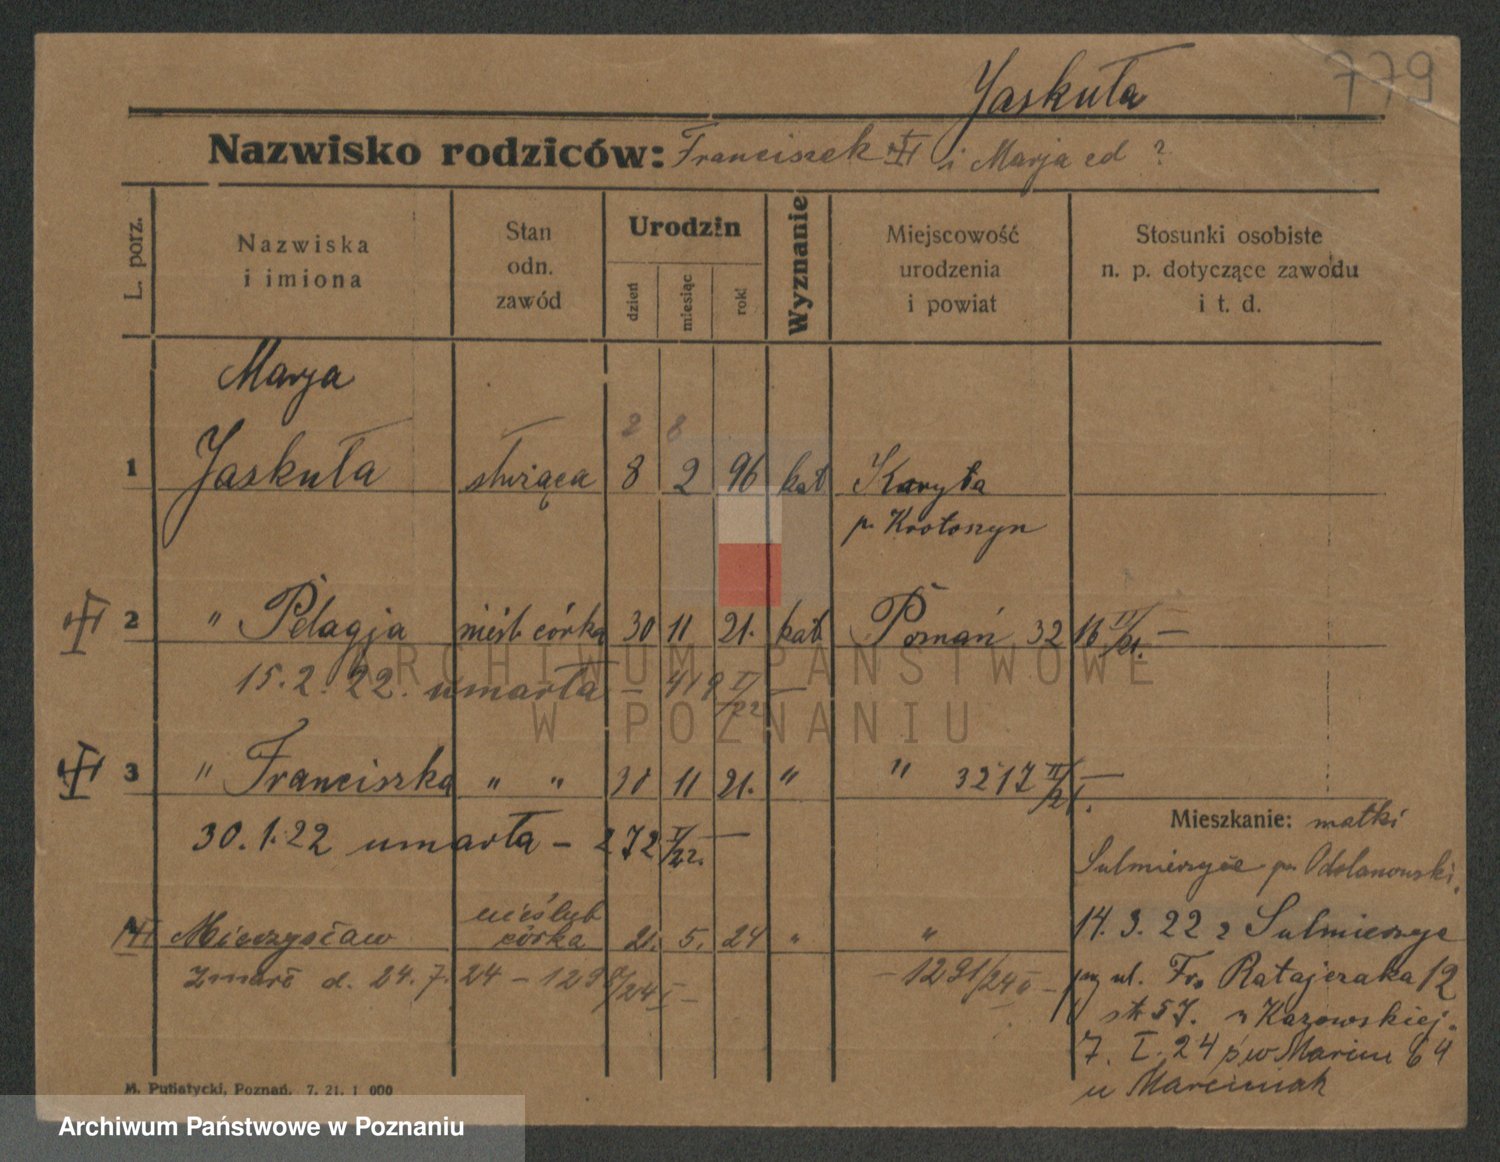 Jaskuła
779
Nazwisko rodziców: Franciszek i Marja cd ?
L. porz.
Nazwiska
i imiona
Stan
odn.
zawód
Urodzin
dzień
miesiąc
rok
Wyznanie
Miejscowość
urodzenia
i powiat
Stosunki osobiste
n. p. dotyczące zawodu
i t. d.
Marja
2 8
1 Jaskuła służąca 8 2 96 kat Koryta
p. Krotoszyn
2 " Pelagja nieśl. córka 30 11 21. kat Poznań 32 16 II/21. —
15. 2. 22. umarła —
3 " Franciszka " " 30 11 21. " " 3217 II/21. —
30. 1. 22 umarła — 272 I/22. —
Mieszkanie: matki
Sulmierzyce pow. Odolanowski.
Mieczysław nieślub córka 21. 5. 24 " "
zmarł d. 24. 7. 24 — 1291/24
14. 3. 22 z Sulmierzyc
przy ul. Fr. Ratajczaka 12
st 57. u Kazowskiej.
7. I. 24 św Marcin 64
u Marciniak
M. Putiatycki, Poznań. 7. 21. 1 000
ARCHIWUM PAŃSTWOWE
W POZNANIU
Archiwum Państwowe w Poznaniu